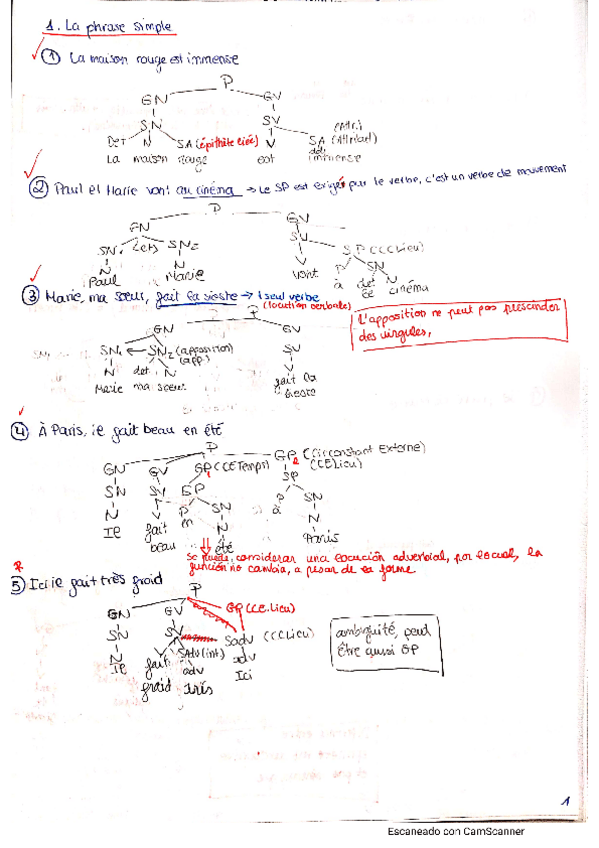 1. La phrase simple
① La maison rouge est immense
P
GN GV
SN SV
Det N SA (épithète liée) V SA (Attribut)
(Attr.)
La maison rouge est immense
② Paul et Marie vont au cinéma → Le SP est exigé par le verbe, c'est un verbe de mouvement
P
GN GV
SN₁ (et) SN₂ SV SP (CC Lieu)
N N vont P SN
Paul Marie à det N
ce cinéma
③ Marie, ma sœur, fait la sieste → 1 seul verbe
(locution verbale)
P
L'apposition ne peut pas prescinder
des virgules,
GN GV
SN₁ ← SN₂ (apposition) SV
(app.)
N det. N fait la
Marie ma sœur sieste
④ À Paris, il fait beau en été
P
GN GV SP (CC Temps) GP (Circonstant Externe)
(CC Lieu)
SN SV SP SP
N fait P SN P SN
Il beau en N à N
été Paris
Se puede considerar una locución adverbial, por lo cual, la
función no cambia, a pesar de su forme
⑤ Ici il fait très froid
P
GN GV GP (CC. Lieu)
SN SV Sadv (CC Lieu)
N fait SAdv (int) adv
Il froid adv Ici
très
ambiguité, peut
être aussi GP
1
Escaneado con CamScanner